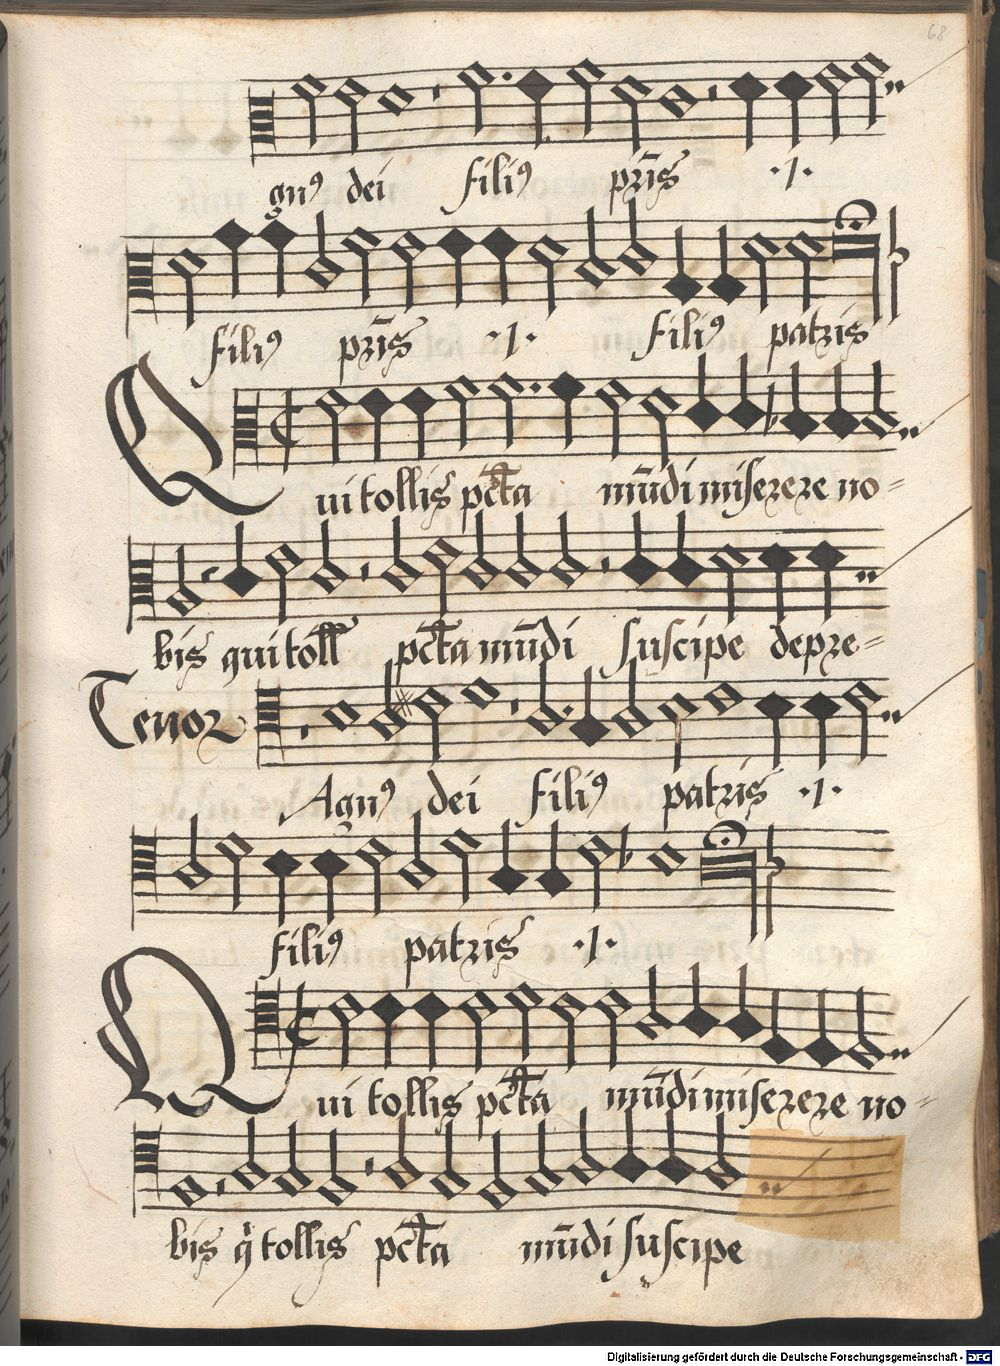 68
gnꝰ dei filiꝰ pr̄is ·I·
filiꝰ pr̄is ·I· filiꝰ patris
Qui tollis pc̄ta mūdi miserere no=
bis qui toll̄ pc̄ta mūdi suscipe depre=
Tenor
Agnꝰ dei filiꝰ patris ·I·
filiꝰ patris ·I·
Qui tollis pc̄ta mūdi miserere no=
bis q tollis pc̄ta mūdi suscipe
Digitalisierung gefördert durch die Deutsche Forschungsgemeinschaft - DFG